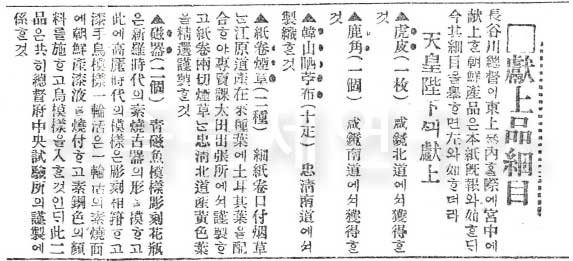 □獻上品細目
長谷川總督이東上參內ᄒᆞᆯ際에宮中에
獻上ᄒᆞᆫ朝鮮産品은本紙旣報와如ᄒᆞ되
今其細目을擧ᄒᆞ면左와如ᄒᆞ더라
天皇陛下의獻上
▲虎皮(一枚) 咸鏡北道에셔獲得ᄒᆞᆫ
것
▲鹿角(一個) 咸鏡南道에셔獲得ᄒᆞᆫ
것
▲韓山晒苧布(十疋) 忠淸南道에셔
製織ᄒᆞᆫ것
▲紙卷煙草(二種) 細紙卷口付烟草
는江原道産在來種葉에土耳其葉을配
合ᄒᆞ야專賣課太田出張所에셔謹製ᄒᆞ
고紙卷兩切煙草는忠淸北道産黃色葉
을精選謹製ᄒᆞᆫ것
▲磁器(二個) 靑磁魚模樣彫刻花瓶
은新羅時代의素燒古器의形을模ᄒᆞ고
此에高麗時代의模樣은彫刻 ᄒᆞ고
漆手烏模樣一輪活은一輪活의素燒面
에朝鮮産漆液을燒付ᄒᆞ고素銅色의顔
料를施ᄒᆞ고烏模樣을入ᄒᆞᆫ것인듸此二
品은共히總督府中央試驗所의謹製에
係ᄒᆞᆫ것